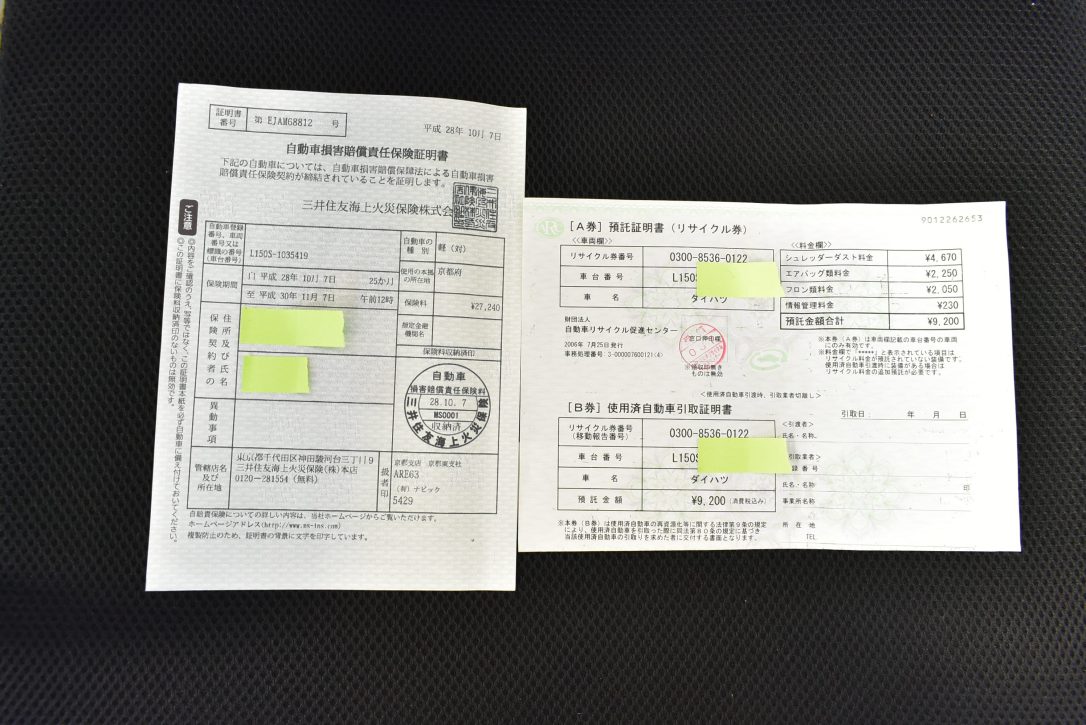 証明書番号 第 EJAM68812 号
平成 28年 10月 7日
自動車損害賠償責任保険証明書
下記の自動車については、自動車損害賠償保障法による自動車損害
賠償責任保険契約が締結されていることを証明します。
三井住友海上火災保険株式会
ご注意
◎内容をご確認のうえ、写等ではなく、この証明書本紙を必ず自動車に備え付けておいてください。
◎この証明書に保険料収納済印のないものは無効です。
自動車登録番号、車両番号又は標識の番号(車台番号) L150S-1035419
自動車の種別 軽(対)
使用の本拠の所在地 京都府
保険期間 自 平成 28年 10月 7日 25か月
至 平成 30年 11月 7日 午前12時
保険料 ¥27,240
指定金融機関名
保険契約者の住所及び氏名
保険料収納済印
自動車
損害賠償責任保険料
28.10.7
MS0001
収納済
三井住友海上火災保険
異動事項
管轄店名及び所在地
東京都千代田区神田駿河台三丁目9
三井住友海上火災保険(株)本店
0120-281554 (無料)
扱者印
京都支店 京都東支社
ARE63
(有)ナビック
5429
自賠責保険についての詳しい内容は、当社ホームページからご覧いただけます。
ホームページアドレス(http://www.ms-ins.com)
複製防止のため、証明書の背景に文字を印字しています。
9012262653
[A券] 預託証明書(リサイクル券)
<<車両欄>>
リサイクル券番号 0300-8536-0122
車台番号 L150S
車名 ダイハツ
<<料金欄>>
シュレッダーダスト料金 ¥4,670
エアバッグ類料金 ¥2,250
フロン類料金 ¥2,050
情報管理料金 ¥230
預託金額合計 ¥9,200
財団法人
自動車リサイクル促進センター
2006年 7月25日発行
事務処理番号: 3-000007600121(4)
窓口押印欄
※領収印無き
ものは無効
※本券(A券)は車両欄記載の車台番号の車両
にのみ有効です。
※料金欄で「*****」と表示されている項目は
リサイクル料金が預託されていない装備です。
使用済自動車引渡時に装備がある場合は
リサイクル料金の追加預託が必要です。
<使用済自動車引渡時、引取業者切離し>
[B券] 使用済自動車引取証明書
引取日: 年 月 日
リサイクル券番号(移動報告番号) 0300-8536-0122
車台番号 L150S
車名 ダイハツ
預託金額 ¥9,200 (消費税込み)
<引渡者>
氏名・名称
引取業者>
録番号
氏名・名称 印
事業所名称
所在地
TEL
※本券(B券)は使用済自動車の再資源化等に関する法律第9条の規定
により、使用済自動車を引取った際に同法第80条の規定に基づき
当該使用済自動車の引取りを求めた者に交付する書面となります。